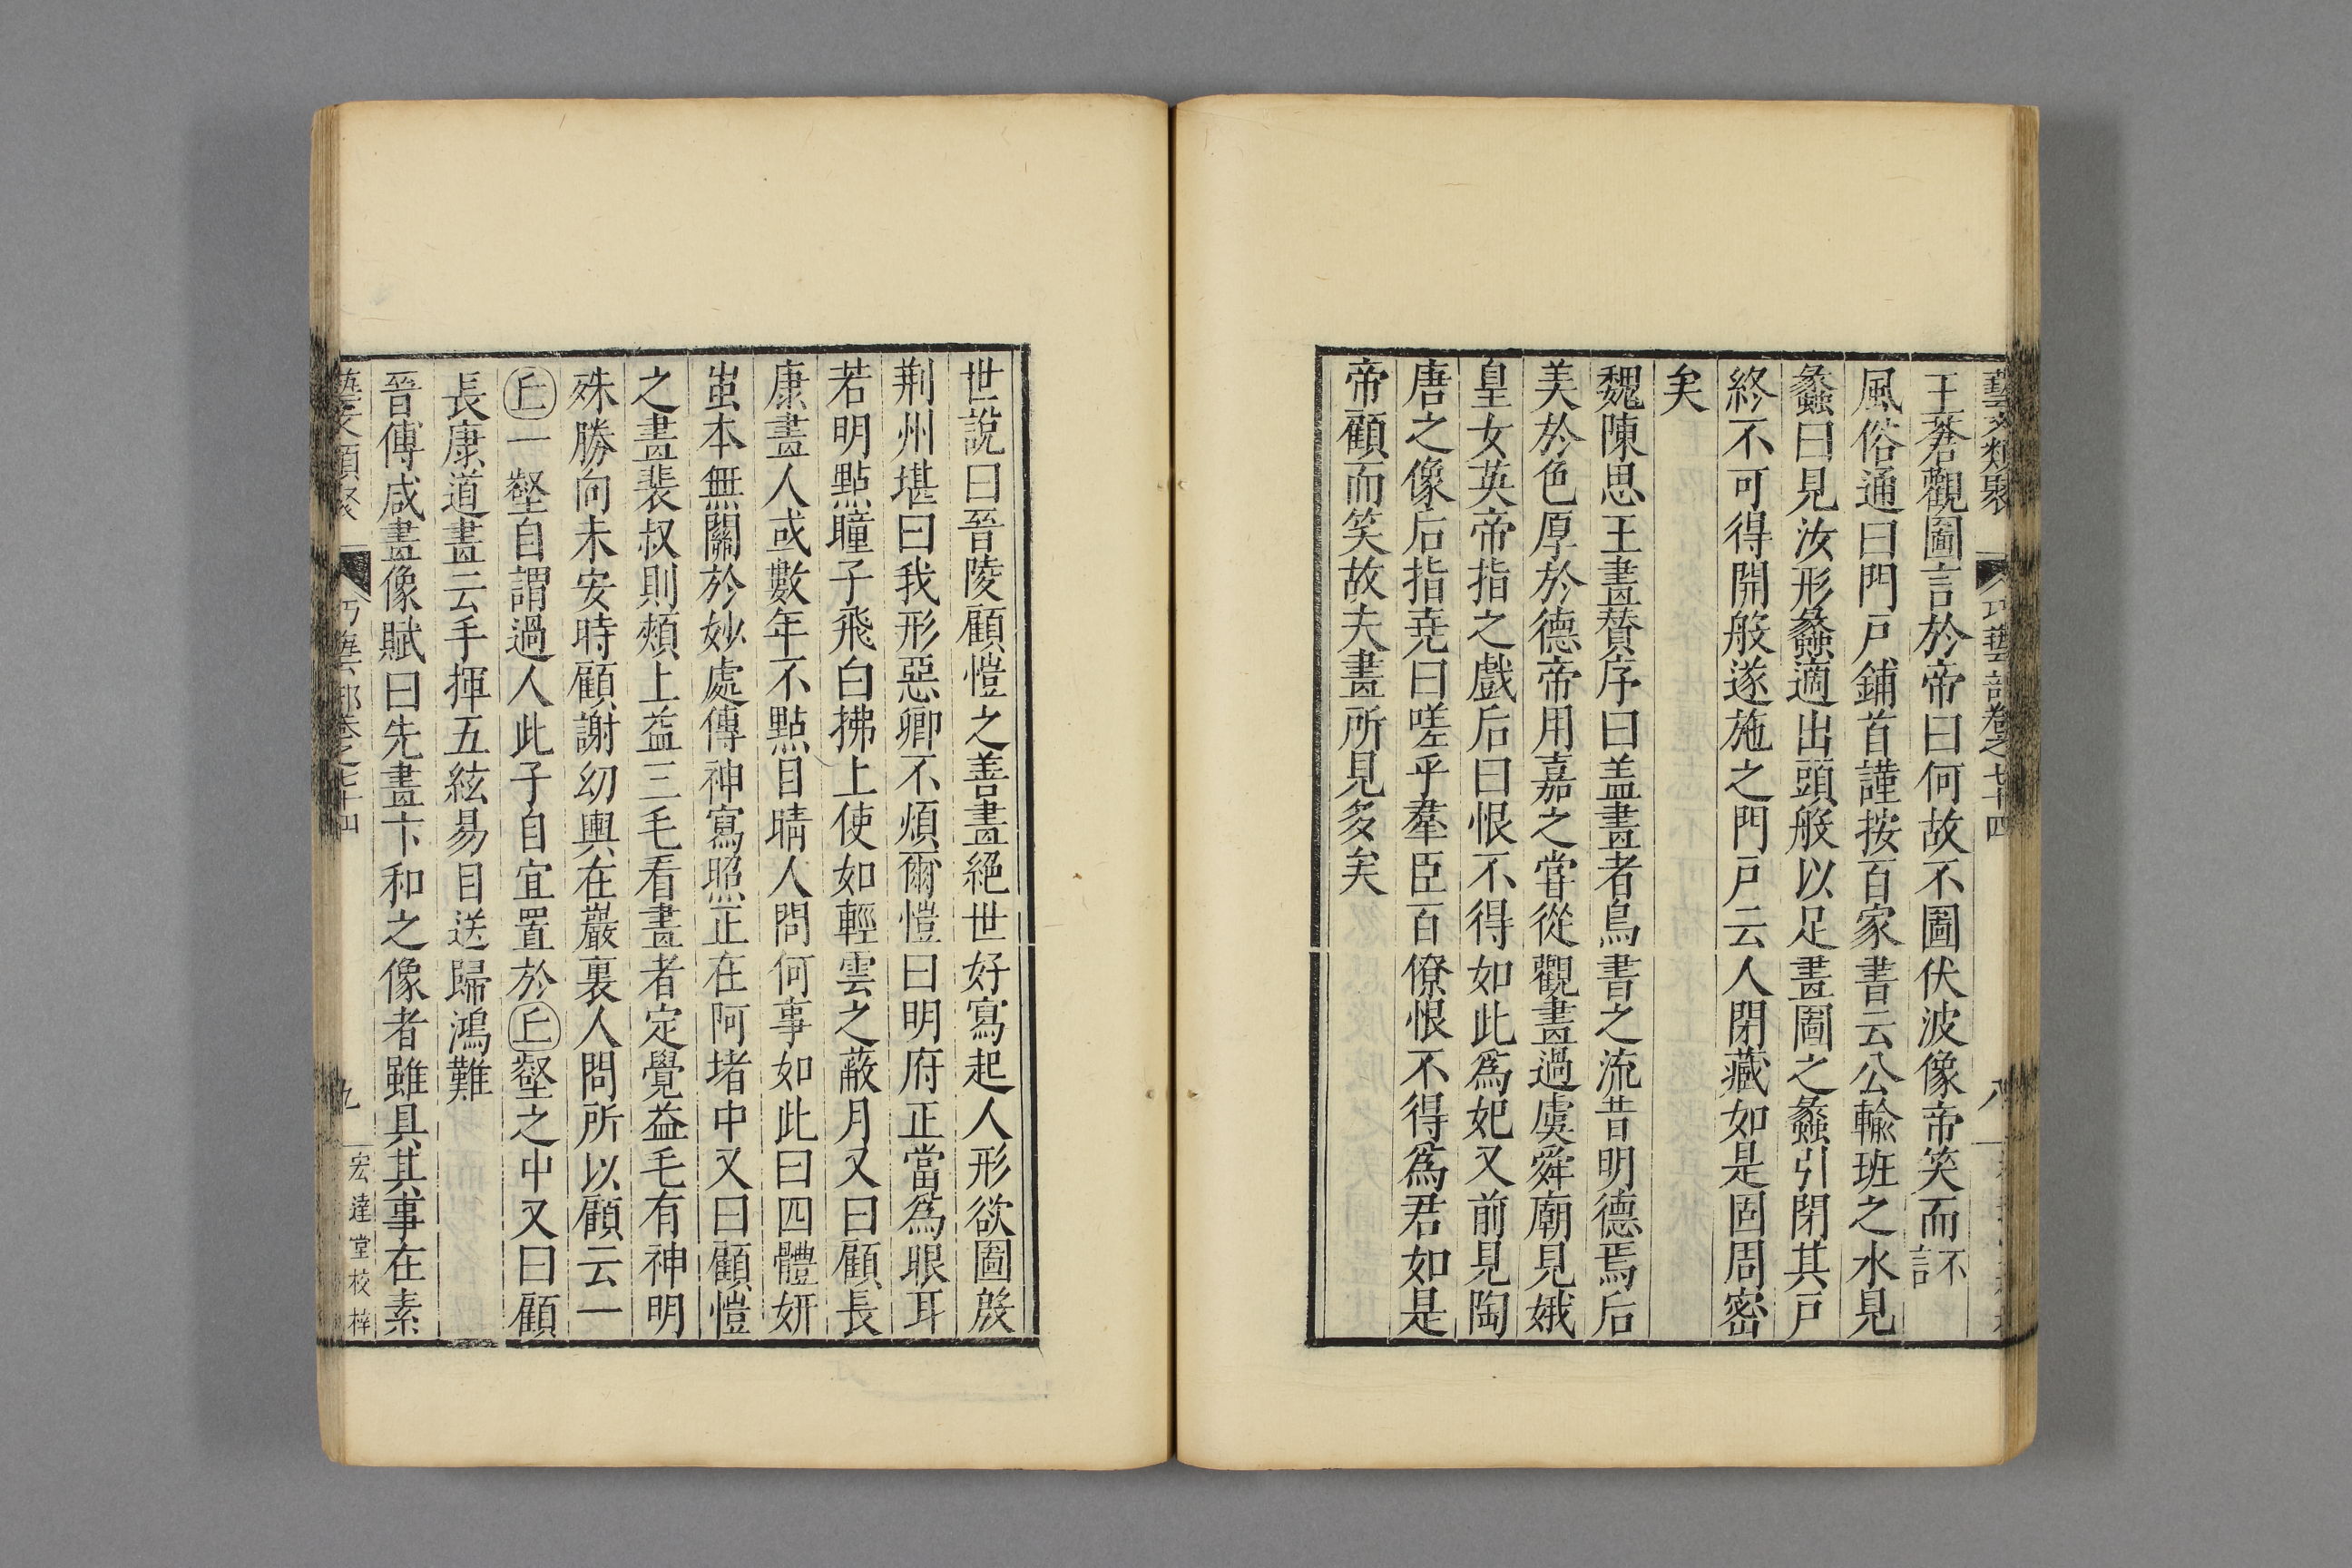 藝文類聚 巧藝部卷之七十四 八
王蒼觀圖言於帝曰何故不圖伏波像帝笑而不言
風俗通曰門戶鋪首謹按百家書云公輸班之水見
蠡曰見汝形蠡適出頭般以足畫圖之蠡引閉其戶
終不可得開般遂施之門戶云人閉藏如是固周密
矣
魏陳思王畫贊序曰盖畫者鳥書之流昔明德焉后
美於色厚於德帝用嘉之甞從觀畫過虞舜廟見娥
皇女英帝指之戲后曰恨不得如此為妃又前見陶
唐之像后指尭曰嗟乎羣臣百僚恨不得為君如是
帝顧而笑故夫畫所見多矣
世說曰晉陵顧愷之善畫絕世好寫起人形欲圖殷
荆州堪曰我形惡卿不煩爾愷曰明府正當為眼耳
若明點瞳子飛白拂上使如輕雲之蔽月又曰顧長
康畫人或數年不點目睛人問何事如此曰四體妍
蚩本無關於妙處傳神寫照正在阿堵中又曰顧愷
之畫裴叔則頰上益三毛看畫者定覺益毛有神明
殊勝向未安時顧謝幼輿在巖裏人問所以顧云一
丘一壑自謂過人此子自宜置於丘壑之中又曰顧
長康道畫云手揮五絃易目送歸鴻難
晉傅咸畫像賦曰先畫卞和之像者雖具其事在素
藝文類聚 巧藝部卷之七十四 九 宏達堂校梓